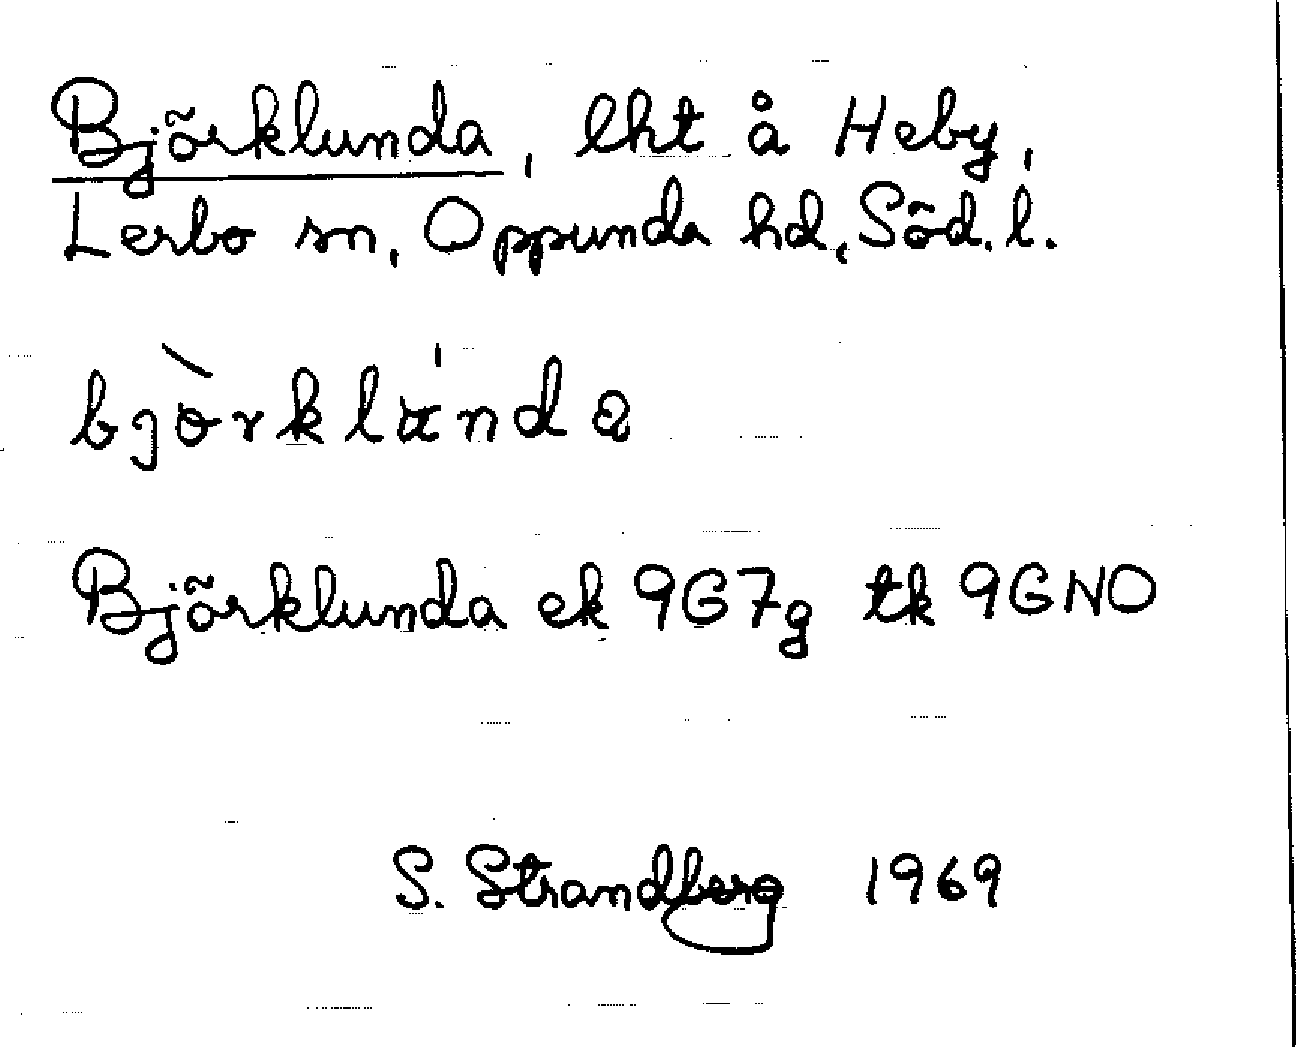 Björklunda, lht å Heby,
Lerbo sn, Oppunda hd, Söd. l.
bjòrklúnda
Björklunda ek 9G7g tk 9GNO
S. Strandberg 1969